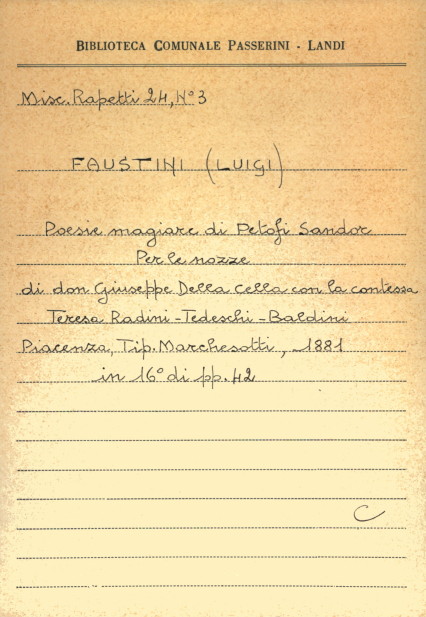 BIBLIOTECA COMUNALE PASSERINI - LANDI
Misc. Rapetti 24, N° 3
FAUSTINI (LUIGI)
Poesie magiare di Petofi Sandor
Per le nozze
di don Giuseppe Della Cella con la contessa
Teresa Radini-Tedeschi-Baldini
Piacenza, Tip. Marchesotti, 1881
in 16° di pp. 42
C